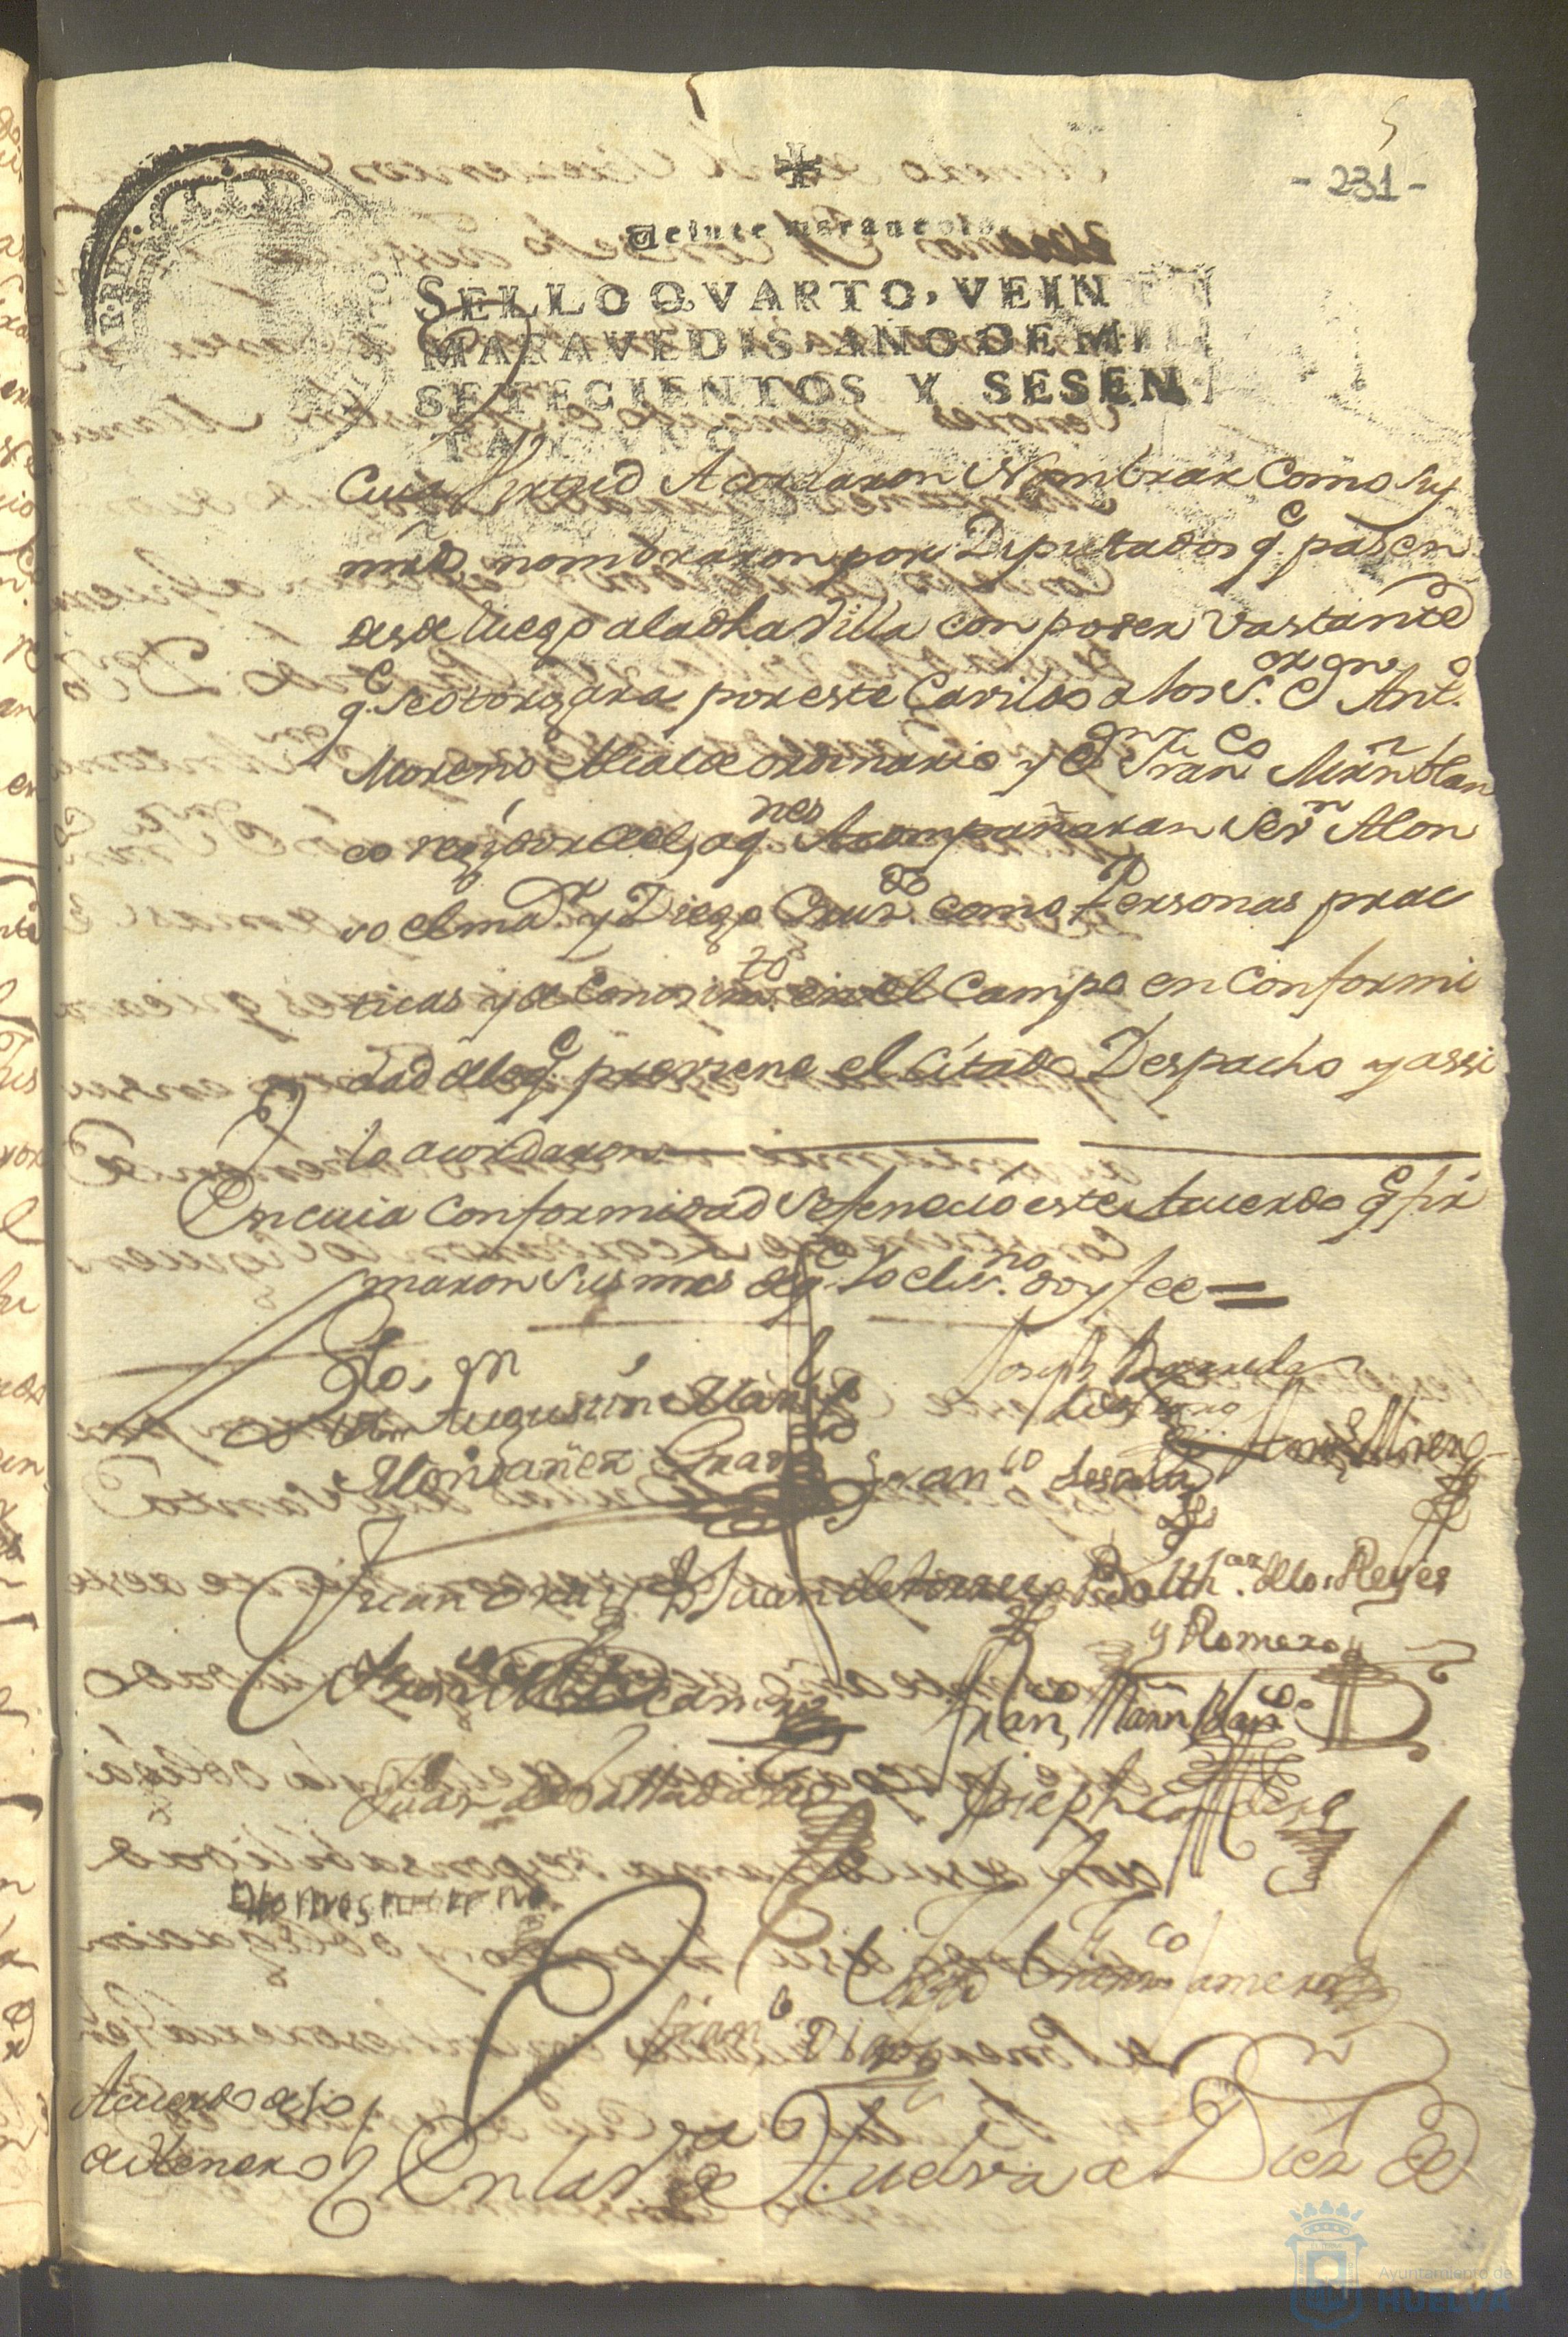 5
- 231 -
Veinte maravedis
SELLO QVARTO, VEIN
MARAVEDIS, AÑO DE MIL
SETECIENTOS Y SESEN
TA Y VNO
Cuia Virtud Acordaron Nombrar Como Sus
mrds nombraron por Diputados q.e pasen
desde luego a la dha Villa con poder vastante
q.e Se otorgara por este Cavildo a los S.or D.n Ant.o
Moreno Alcalde ordinario y D.n Fran.co Mrñ blan
co regidor del, a q.nes Acompañaran Sevn Alon
so el ma.r y Diego Cruz como Personas prac
ticas y de Conosim.to en el Campo en Conformi
dad de lo q.e previene el Citado Despacho y assi
lo acordaron
En cuia Conformidad Se fenecio este Acuerdo q.e fir
maron Sus mrds de q.e Yo el es.no doy fee =
Augustin
Montañer
Joseph
Ant.o Moreno
Fran.co
Juan Cruz
Juan de Torres
Balth.ar de los Reyes
y Romero
Fran.co Marñ blan.co
Juan de
Joseph
Fran.co
Fran.co Diaz
Acuerdo de 10
de Henero
En la V.a de Huelva a Diez de
Ayuntamiento de
HUELVA